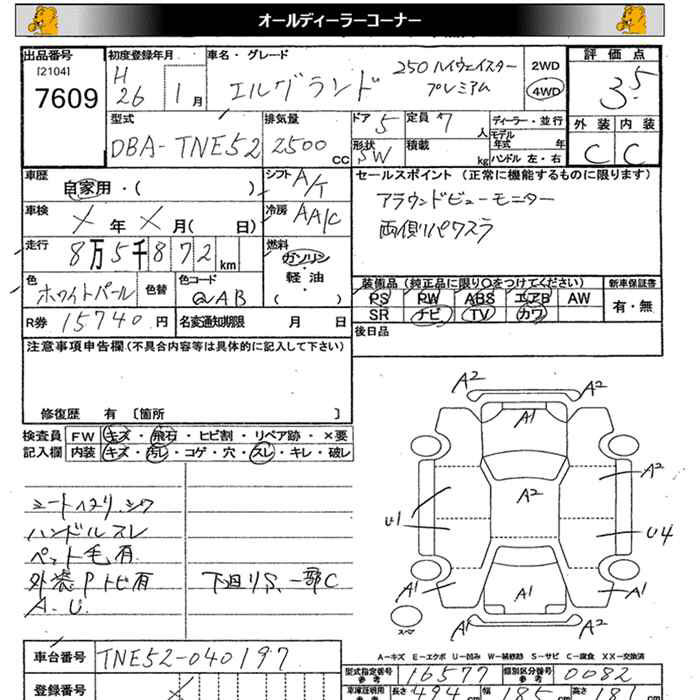 オールディーラーコーナー
出品番号 [2104] 7609
初度登録年月 H26 1月
車名・グレード エルグランド 250 ハイウェイスター プレミアム
2WD 4WD
評価点 3.5
外装 内装
C C
型式 DBA-TNE52
排気量 2500 CC
ドア 5
定員 7 人
形状 SW
積載 kg
ディーラー・並行
モデル年式 年
ハンドル 左・右
車歴 自家用・( )
シフト A/T
車検 × 年 × 月( 日)
冷房 AAC
走行 8万5千872km
燃料 ガソリン・軽油・( )
色 ホワイトパール 色替
色コード QAB
R券 15740 円
名変通知期限 月 日
セールスポイント (正常に機能するものに限ります)
アラウンドビューモニター
両側パワスラ
装備品(純正品に限り○をつけてください)
新車保証書
PS PW ABS エアB AW
SR ナビ TV カワ
有・無
後日品
注意事項申告欄(不具合内容等は具体的に記入して下さい)
修復歴 有 〔箇所 〕
検査員記入欄
FW キズ・飛石・ヒビ割・リペア跡・×要
内装 キズ・汚レ・コゲ・穴・スレ・キレ・破レ
シートヘタリ、シワ
ハンドルスレ
ペット毛有
外装Pトビ有 下回りS、一部C
A.U.
A2 A2
A1
A2 A2
U1 U4
A1 A1 A1
A2 A2
スペア
A-キズ E-エクボ U-凹み W-補修跡 S-サビ C-腐食 XX-交換済
車台番号 TNE52-040197
登録番号
型式指定番号 参考 16577
類別区分番号 参考 0082
車庫証明用 参考 長さ 494 cm 幅 185 cm 高さ 181 cm